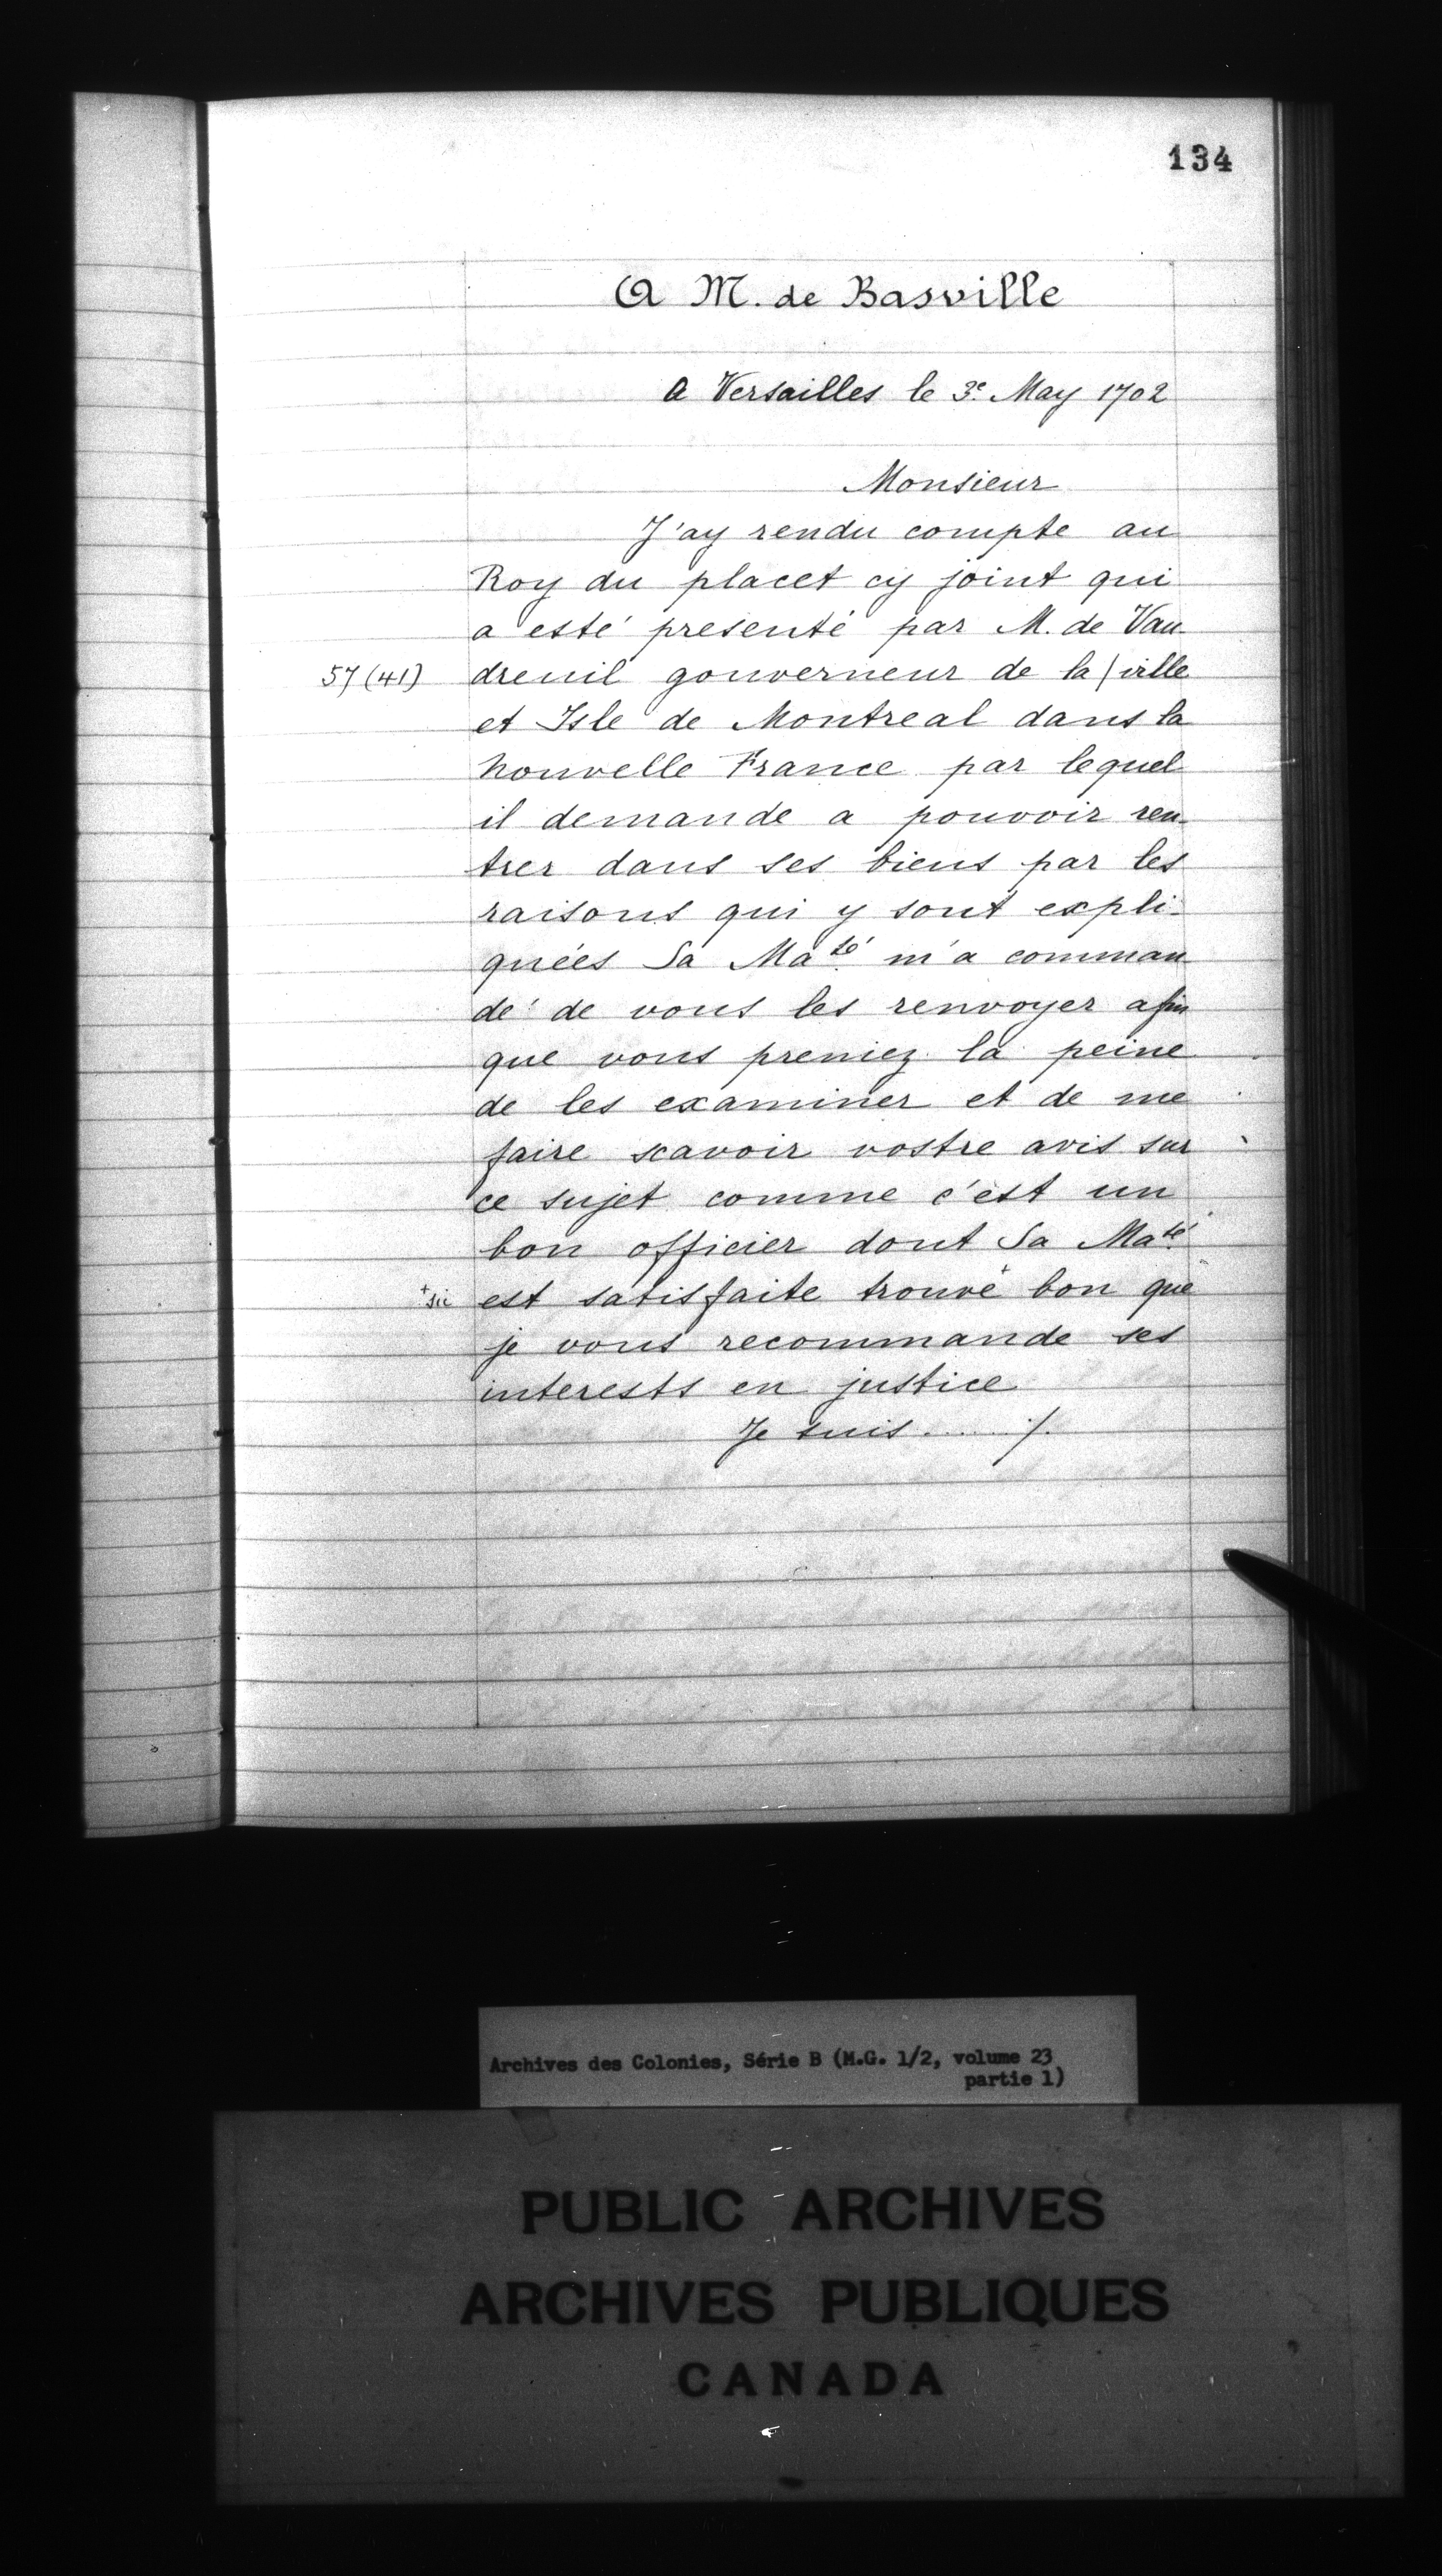 134
A M. de Basville
A Versailles le 3e. May 1702
Monsieur
J'ay rendu compte au
Roy du placet cy joint qui
a esté presenté par M. de Vau
57 (41) dreuil gouverneur de la / ville
et Isle de Montreal dans la
nouvelle France par lequel
il demande a pouvoir ren-
trer dans ses biens par les
raisons qui y sont expli-
quées Sa Maté. m'a comman
dé de vous les renvoyer afin
que vous preniez la peine
de les examiner et de me
faire scavoir vostre avis sur
ce sujet comme c'est un
bon officier dont Sa Maté.
+sic est satisfaite trouvé+ bon que
je vous recommande ses
interests en justice
Je suis ..... /.
Archives des Colonies, Série B (M.G. 1/2, volume 23
partie 1)
PUBLIC ARCHIVES
ARCHIVES PUBLIQUES
CANADA